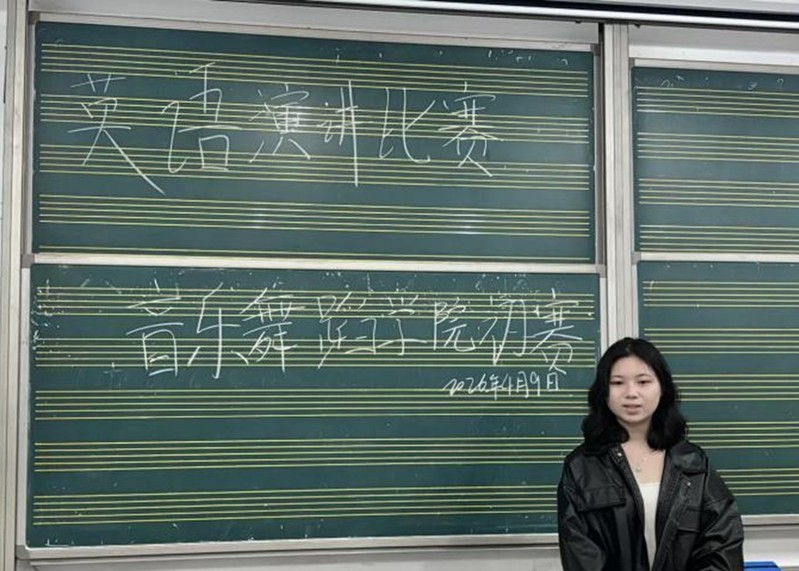 英语演讲比赛
音乐舞蹈学院初赛
2026年4月9日